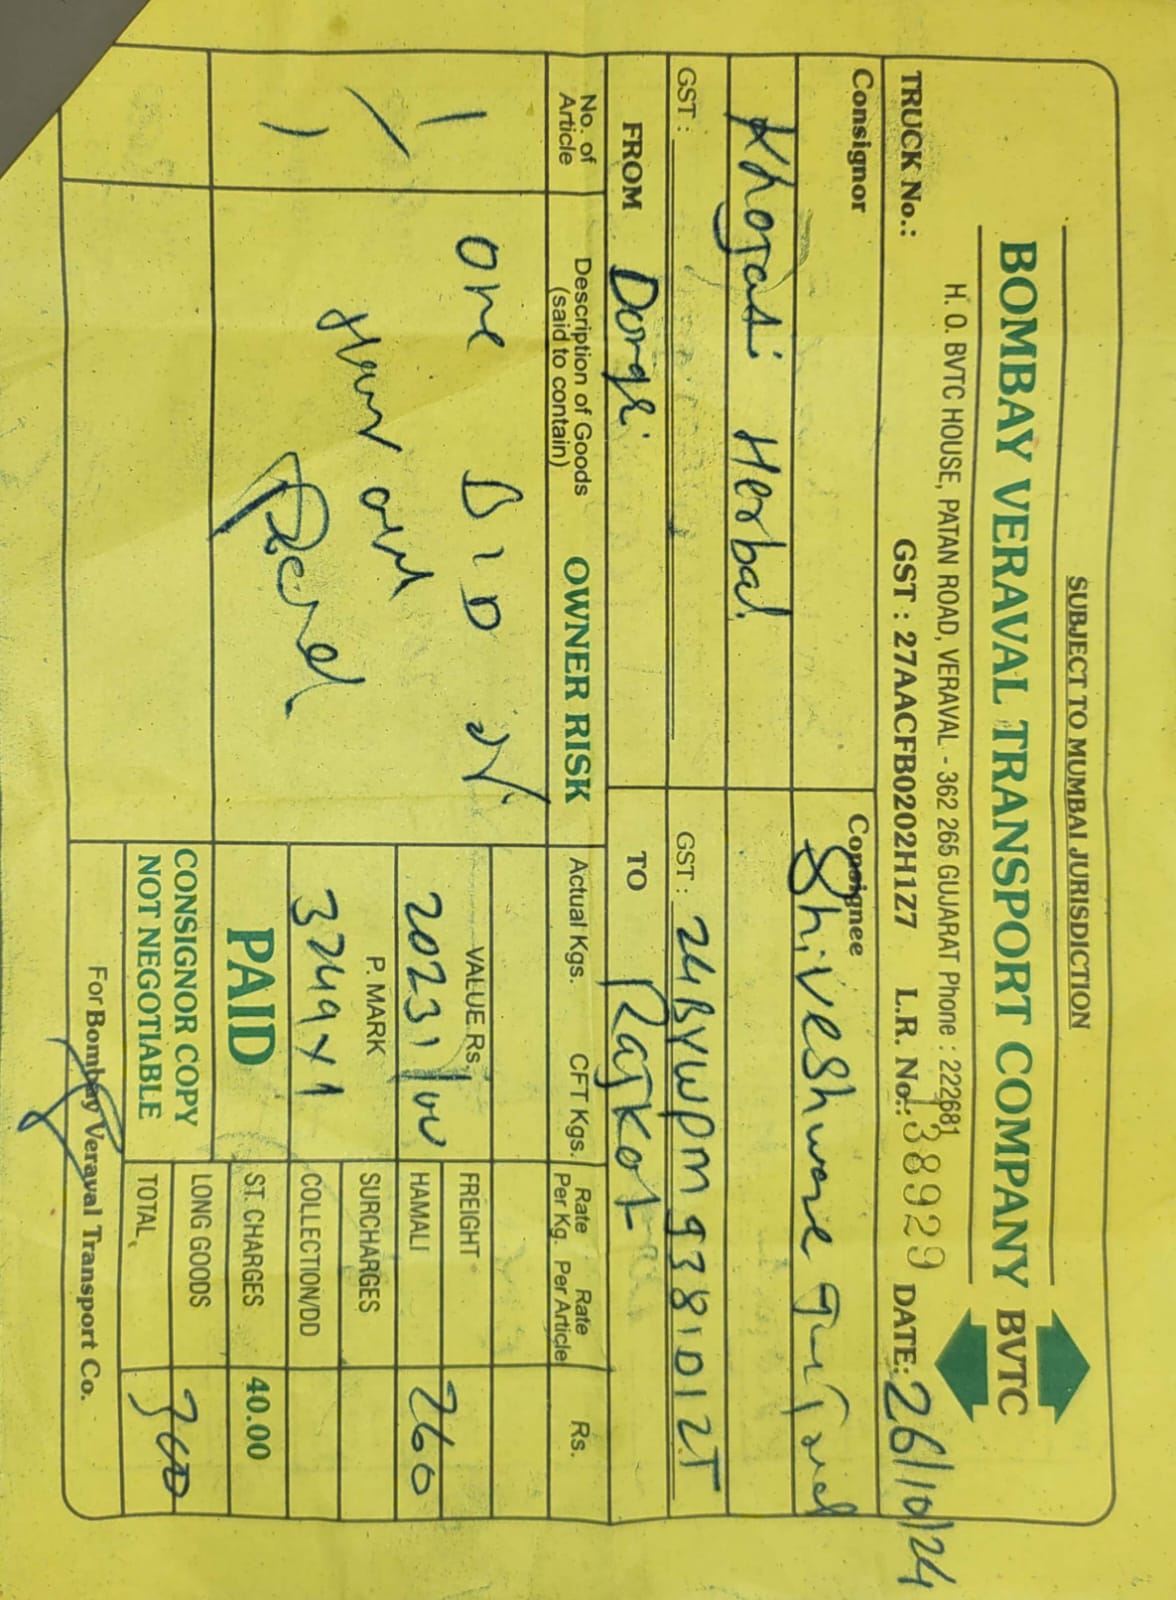 SUBJECT TO MUMBAI JURISDICTION
BOMBAY VERAVAL TRANSPORT COMPANY BVTC
H. O. BVTC HOUSE, PATAN ROAD, VERAVAL - 362 265 GUJARAT Phone : 222681
TRUCK No.: GST : 27AACFB0202H1Z7 L.R. No.: 138929 DATE: 26/10/24
Consignor
Consignee
Shiveshware
Khojasi Herbal
GST :
GST : 24BYWPM9381D1ZT
FROM Dongri
TO Rajkot
No. of Article
Description of Goods (said to contain)
OWNER RISK
Actual Kgs.
CFT Kgs.
Rate Per Kg.
Rate Per Article
Rs.
one
VALUE Rs.
20231/00
P. MARK
3249x1
PAID
CONSIGNOR COPY
NOT NEGOTIABLE
FREIGHT
HAMALI
260
SURCHARGES
COLLECTION/DD
ST. CHARGES 40.00
LONG GOODS
TOTAL 300
For Bombay Veraval Transport Co.